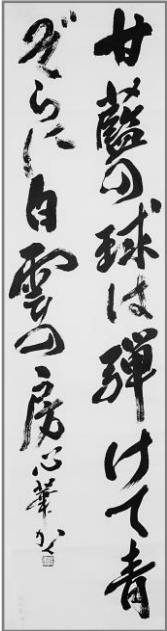 甘藍の球は弾けて青
ぞらに白雲の房心華かく